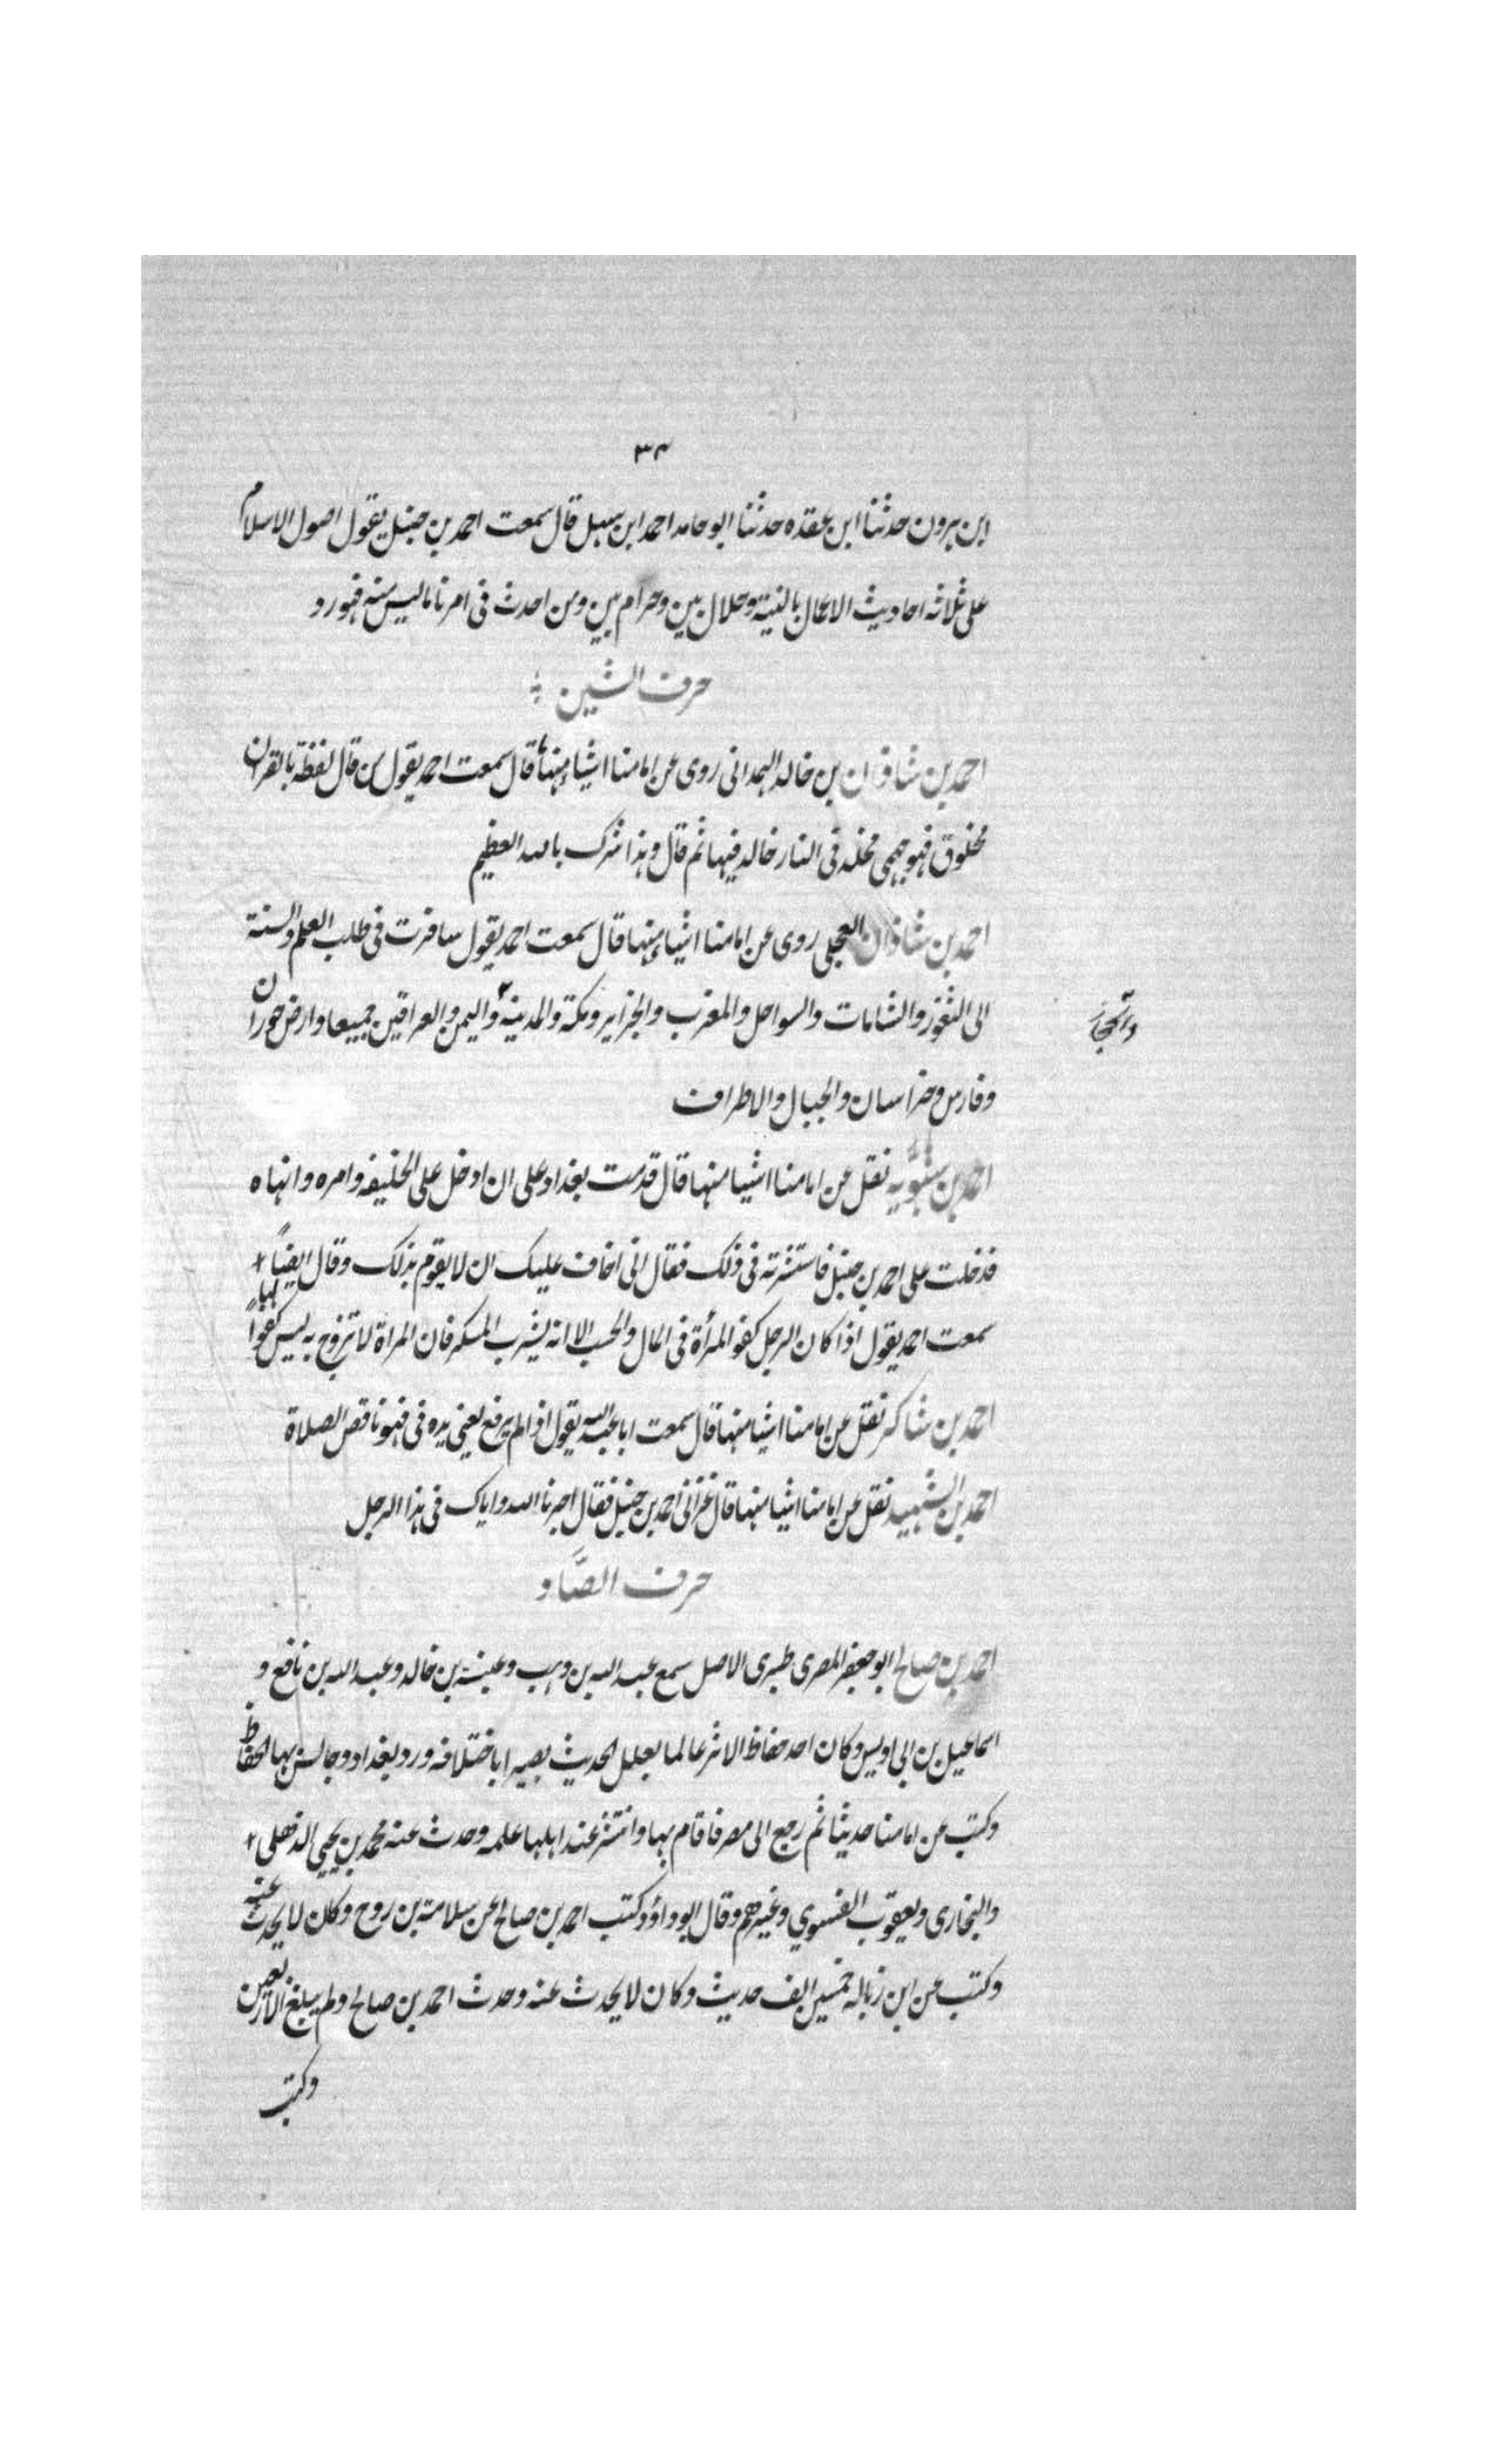 ٣٤
ابن بيرون حدثنا ابن عقده حدثنا ابو حامد احمد ابن سهل قال سمعت احمد بن حنبل يقول اصول الاسلام
على ثلاثه احاديث الاعمال بالنية وحلال بين وحرام بين ومن احدث فى امرنا ماليس منه فهو رد
حرف الشين
احمد بن شاذان بن خالد الهمدانى روى عن امامنا اشياء منها قال سمعت احمد يقول من قال لفظه بالقران
مخلوق فهو جهمى مخلد فى النار خالد فيها ثم قال وهذا شرك بالله العظيم
احمد بن شاذان العجلى روى عن امامنا اشياء منها قال سمعت احمد يقول سافرت فى طلب العلم والسنة
الى الثغور والشامات والسواحل والمغرب والجزاير ومكة والمدينة واليمن والعراقين جميعا وارض حوران
والحجاز
وفارس وخراسان والجبال والاطراف
احمد بن شبويه نقل عن امامنا اشيا منها قال قدمت بغداد على ان ادخل على الخليفه وامره وانهاه
فدخلت على احمد بن حنبل فاستشرته فى ذلك فقال انى اخاف عليك ان لا يقوم بذلك وقال ايضاً
سمعت احمد يقول اذا كان الرجل كفو المرأة فى المال والحسب الا انه يشرب المسكر فان المراة لا تزوج به ليس كفواً لها
احمد بن شاكر نقل عن امامنا اشيا منها قال سمعت ابا عبدالله يقول اذا لم يرفع يعنى يده فى فهو ناقص الصلاة
احمد بن الشهيد نقل عن امامنا اشيا منها قال عزانى احمد بن حنبل فقال اجرنا الله واياك فى هذا الرجل
حرف الصَّاد
احمد بن صالح ابو جعفر المصرى طبرى الاصل سمع عبد الله بن وهب وعنبسة بن خالد وعبد الله بن نافع و
اسماعيل بن ابى اويس وكان احد حفاظ الاثر عالما بعلل الحديث بصيرا باختلافه ورد بغداد وجالس بها الحفاظ
وكتب عن امامنا حديثا ثم رجع الى مصر فاقام بها وانتشر عند اهلها علمه وحدث عنه محمد بن يحيى الذهلى
والبخارى ويعقوب الفسوي وغيرهم وقال ابو داؤد كتب احمد بن صالح عن سلامة بن روح وكان لا يحدث عنه
وكتب عن ابن زباله خمسين الف حديث وكان لا يحدث عنه وحدث احمد بن صالح ولم يبلغ الاربعين
وكتب